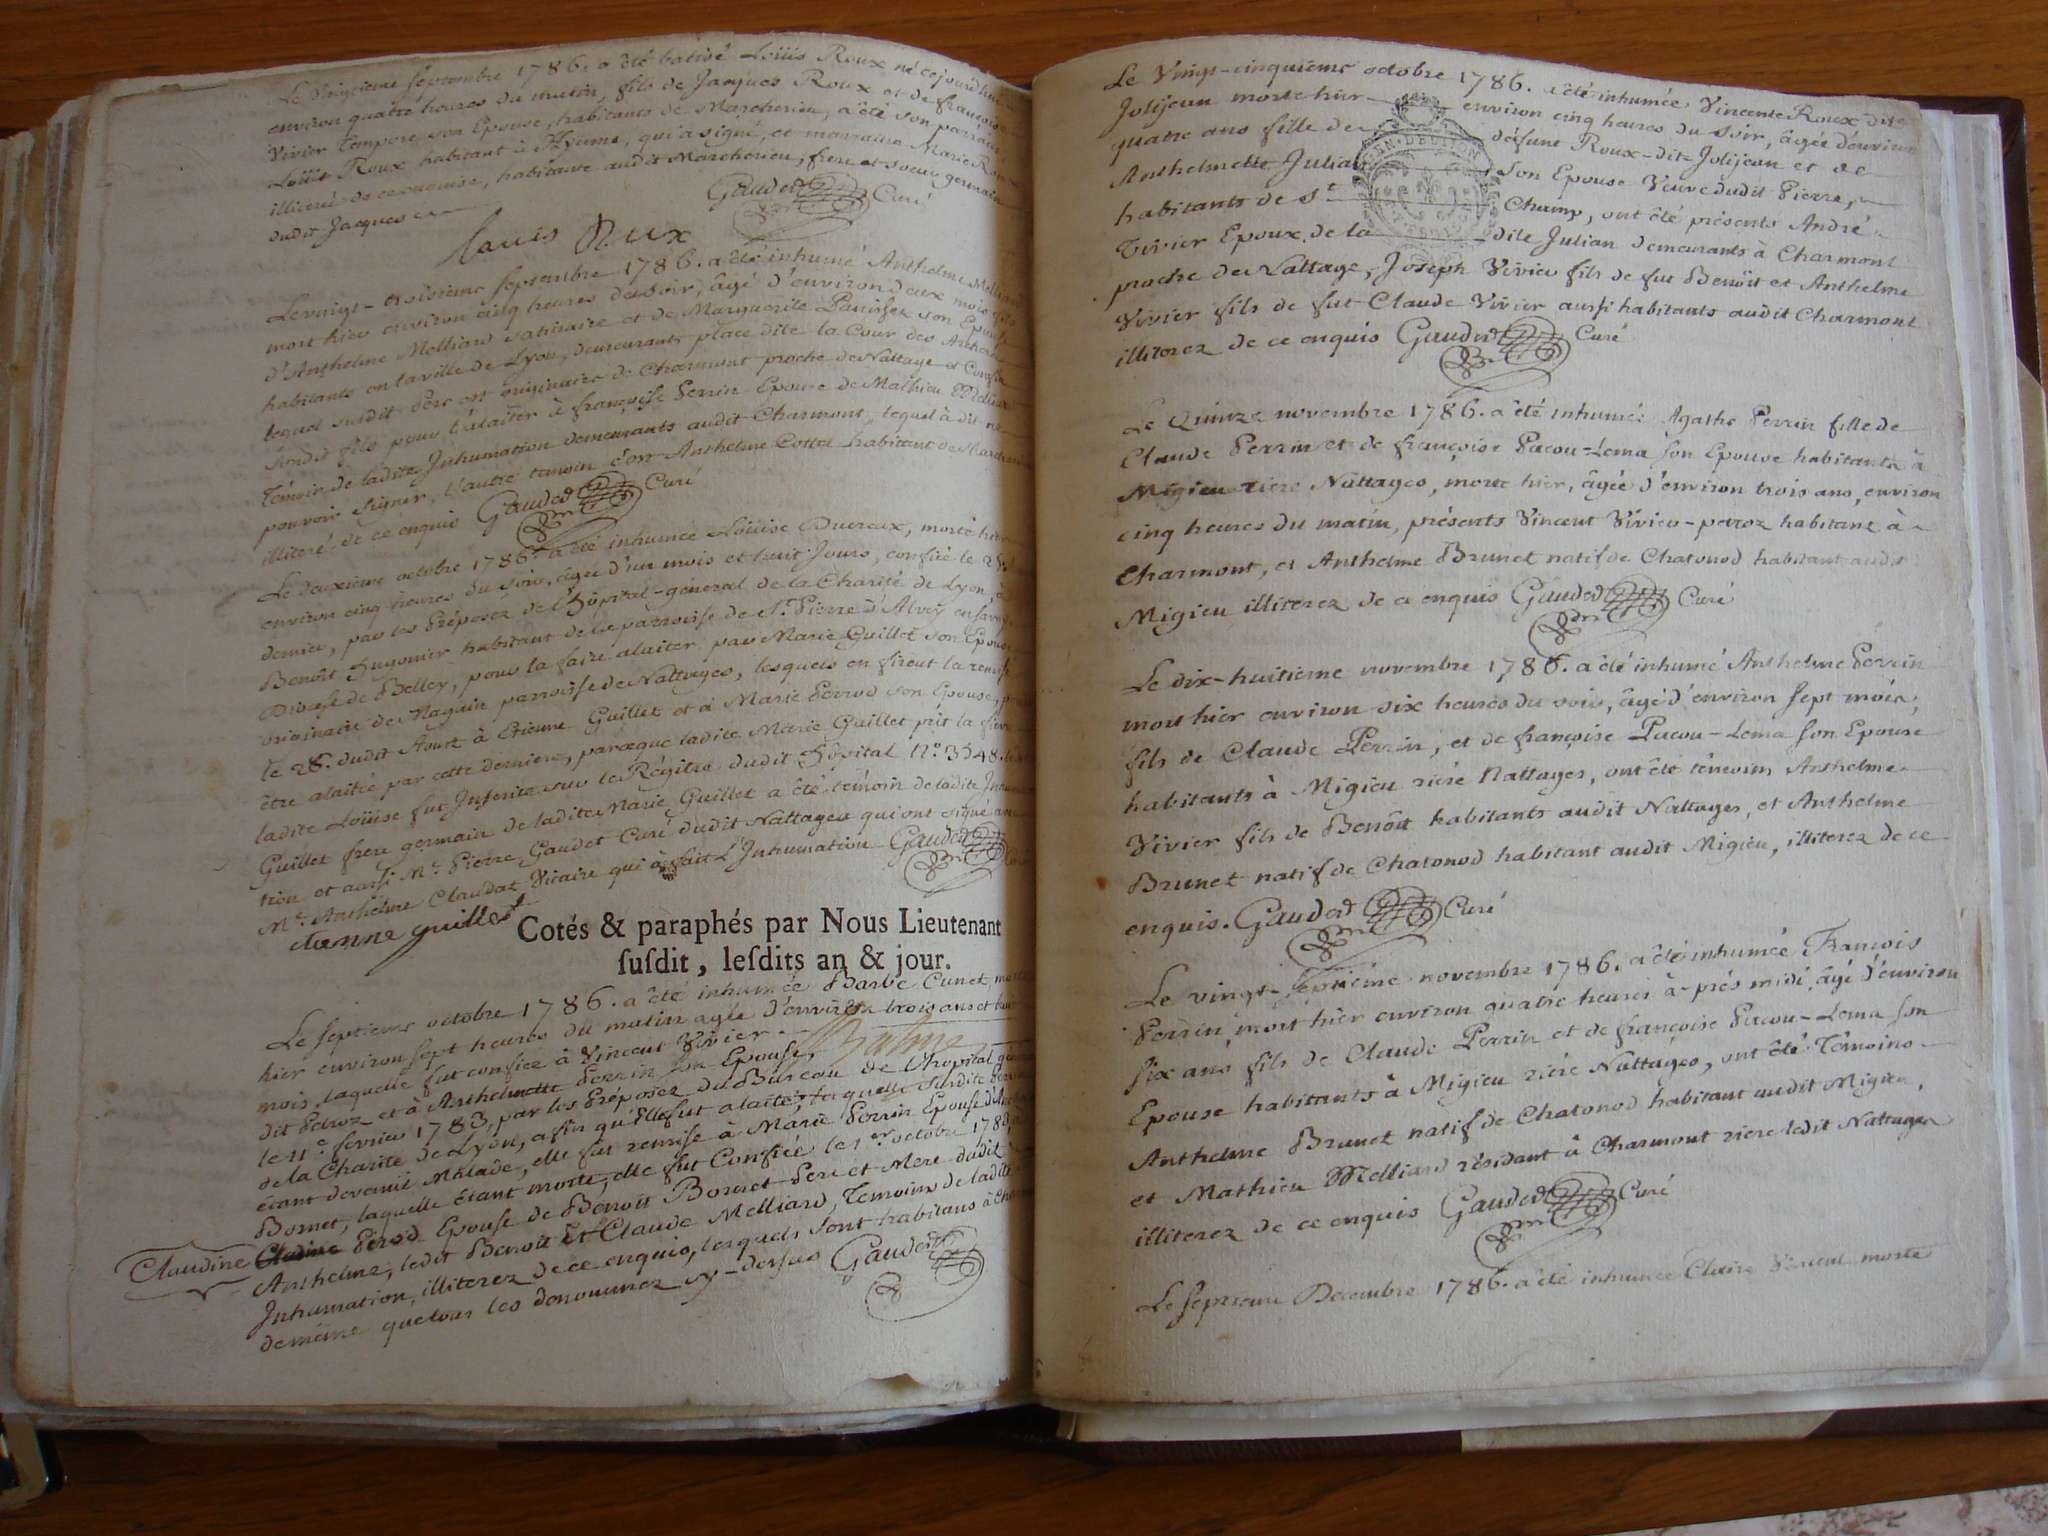 Le vingtieme septembre 1786. a été batisé Loüis Roux né cejourdhui
environ quatre heures du matin, fils de Jacques Roux et de françoise
Vivier Tempore son Epouse, habitants de Marcherieu, a été son parrain
Loüis Roux habitant à Yenne, qui a signé, et marraine Marie
illiterée de ce enquise, habitante audit Marcherieu, frere et soeur germains
dudit Jacques Gaudet Curé
Louis Roux
Le vingt-troisieme septembre 1786. a été inhumé Anthelme Melliard
mort hier environ cinq heures du soir, âgé d'environ deux mois fils
d'Anthelme Melliard satinaire et de Marguerite son Epouse
habitants en la ville de Lyon, demeurants place dite la Cour des
lequel susdit Pere est originaire de Charmont proche de Nattage et
sondit fils pour l'alaiter à françoise Perrin Epouse de Mathieu Melliard
Témoin de ladite Inhumation demeurants audit Charmont, lequel à dit ne
pouvoir signer, l'autre temoin est Anthelme Cottel habitant de
illiteré de ce enquis Gaudet Curé
Le deuxieme octobre 1786. a été inhumée Loüise Duereux, morte hier
environ cinq heures du soir, âgée d'un mois et huit Jours, confiée le 25.
dernier, par les Préposez de l'hôpital-général de la Charité de Lyon, à
Benoît Hugonier habitant de la parroisse de St. Pierre d'Alvey en
Diocese de Belley, pour la faire alaiter par Marie Guillet son Epouse
originaire de Naguin parroisse de Nattages, lesquels en firent la remise
le 28. dudit Aoust à Etienne Guillet et à Marie Perrod son Epouse,
être alaitée par cette derniere, parceque ladite Marie Guillet prit la fievre
ladite Loüise fut Inscrite sur le Régitre dudit hôpital N°. 3548.
Guillet frere germain de ladite Marie Guillet a été témoin de ladite
tion et aussi Mr. Pierre Gaudet Curé dudit Nattages qui ont signé avec
Mre. Anthelme Claudat Vicaire qui à fait L'Inhumation Gaudet
etienne guillet
Cotés & paraphés par Nous Lieutenant
ſuſdit, leſdits an & jour.
Le septieme octobre 1786. a été inhumée Barbe Cunet,
hier environ sept heures du matin agée d'environ trois ans et huit
mois, laquelle fut confiée à Vincent Vivier
dit Petroz et à Anthelmette Perrin son Epouse,
le 11e. fevrier 1783, par les Préposez du Bureau de l'hopital
de la Charité de Lyon, afin qu'Elle fut alaitée, laquelle susdite
étant devenuë Malade, elle fut remise à Marie Perrin Epouse
Bornet, laquelle étant morte, elle fut Confiée le 1er. octobre
Claudine Perod Epouse de Benoît Bornet Pere et Mere dudit
Anthelme, ledit Benoît et Claude Melliard, Temoins de ladite
Inhumation, illiterez de ce enquis, lesquels sont habitans à
demême que tous les dénommez cy-dessus Gaudet
Le Vingt-cinquieme octobre 1786. a été inhumée Vincente Roux dit
Jolijean morte hier environ cinq heures du soir, âgée d'environ
quatre ans fille de défunt Roux-dit-Jolijean et de
Anthelmette Julian Son Epouse Veuve dudit Pierre,
habitants de St. Champ, ont été présents André
Vivier Epoux de la dite Julian demeurants à Charmont
proche de Nattage, Joseph Vivier fils de fut Benoit et Anthelme
Vivier fils de fut Claude Vivier aussi habitants audit Charmont
illiterez de ce enquis Gaudet Curé
Le Quinze novembre 1786. a été inhumée Agathe Perrin fille de
Claude Perrin et de françoise Pacou-Lema son Epouse habitants à
Migieu riere Nattages, morte hier, âgée d'environ trois ans, environ
cinq heures du matin, présents Vincent Vivier-petroz habitant à
Charmont, et Anthelme Brunet natif de Chatonod habitant audit
Migieu illiterez de ce enquis Gaudet Curé
Le dix-huitieme novembre 1786. a été inhumé Anthelme Perrin
mort hier environ six heures du soir, âgé d'environ sept mois,
fils de Claude Perrin, et de françoise Pacou-Lema son Epouse
habitants à Migieu riere Nattages, ont été témoins Anthelme
Vivier fils de Benôit habitants audit Nattages, et Anthelme
Brunet natif de Chatonod habitant audit Migieu, illiterez de ce
enquis. Gaudet Curé
Le vingt-septiéme novembre 1786. a été inhumée François
Perrin, mort hier environ quatre heures à-prés midi, âgé d'environ
six ans fils de Claude Perrin et de françoise Pacou-Lema son
Epouse habitants à Migieu riere Nattages, ont été Témoins
Anthelme Brunet natif de Chatonod habitant audit Migieu,
et Mathieu Melliard résidant à Charmont riere ledit Nattages
illiterez de ce enquis Gaudet Curé
Le septieme Decembre 1786. a été inhumée Claire morte